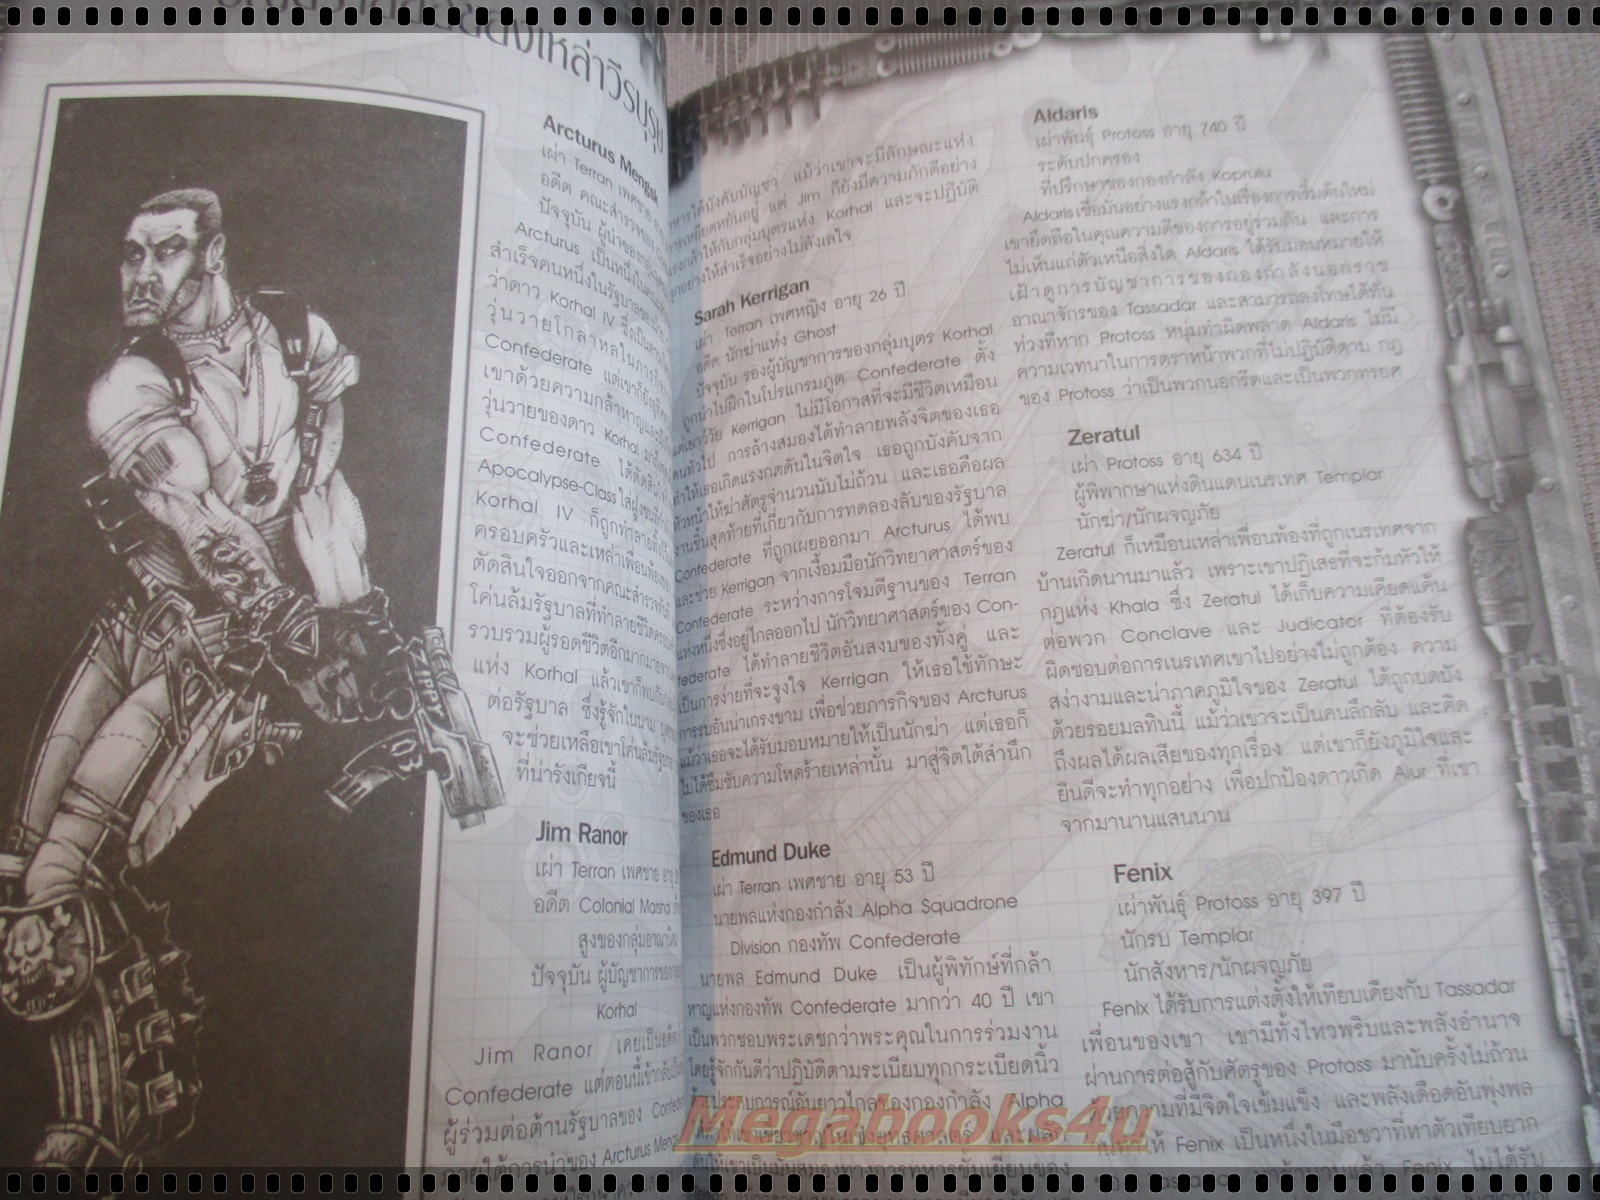 ของเหล่าวีรบุรุษ
Arcturus Mengsk
เผ่า Terran เพศชาย
อดีต คณะสำรวจของ
ปัจจุบัน ผู้นำของกลุ่ม
Arcturus เป็นหนึ่งใน
สำเร็จคนหนึ่งในรัฐบาล
ว่าดาว Korhal IV ซึ่งเป็น
วุ่นวายโกลาหลในภารกิจ
Confederate แต่เขาก็ยัง
เขาด้วยความกล้าหาญและ
วุ่นวายของดาว Korhal มา
Confederate ได้ตัดสิน
Apocalypse-Class ใส่ฝูงชน
Korhal IV ก็ถูกทำลาย
ครอบครัวและเหล่าเพื่อนพ้องของ
ตัดสินใจออกจากคณะสำรวจ
โค่นล้มรัฐบาลที่ทำลายชีวิต
รวบรวมผู้รอดชีวิตอีกมากมาย
แห่ง Korhal แล้วเขาก็พบกับ
ต่อรัฐบาล ซึ่งรู้จักในนาม
จะช่วยเหลือเขาโค่นล้ม
ที่น่ารังเกียจนี้
Jim Ranor
เผ่า Terran เพศชาย อายุ
อดีต Colonial Marshal
สูงของกลุ่มอาณานิคม
ปัจจุบัน ผู้บัญชาการของ
Korhal
Jim Ranor เคยเป็น
Confederate แต่ตอนนี้เข้า
ผู้ร่วมต่อต้านรัฐบาลของ
ภายใต้การนำของ Arcturus
หารใต้บังคับบัญชา แม้ว่าเขาจะมีลักษณะแห่ง
เหยียดหยันอยู่ แต่ Jim ก็ยังมีความภักดีอย่าง
แรงกล้าให้กับกลุ่มบุตรแห่ง Korhal และจะปฏิบัติ
ทุกอย่างให้สำเร็จอย่างไม่ลังเลใจ
Sarah Kerrigan
เผ่า Terran เพศหญิง อายุ 26 ปี
อดีต นักฆ่าแห่ง Ghost
ปัจจุบัน รองผู้บัญชาการของกลุ่มบุตร Korhal
ถูกนำไปฝึกในโปรแกรมภูต Confederate ตั้ง
แต่เยาว์วัย Kerrigan ไม่มีโอกาสที่จะมีชีวิตเหมือน
คนทั่วไป การล้างสมองได้ทำลายพลังจิตของเธอ
ทำให้เธอเกิดแรงกดดันในจิตใจ เธอถูกบังคับจาก
หัวหน้าให้ฆ่าศัตรูจำนวนนับไม่ถ้วน และเธอคือผล
งานชิ้นสุดท้ายที่เกี่ยวกับการทดลองลับของรัฐบาล
Confederate ที่ถูกเผยออกมา Arcturus ได้พบ
และช่วย Kerrigan จากเงื้อมมือนักวิทยาศาสตร์ของ
Confederate ระหว่างการโจมตีฐานของ Terran
แห่งหนึ่งซึ่งอยู่ไกลออกไป นักวิทยาศาสตร์ของ Con-
federate ได้ทำลายชีวิตอันสงบของทั้งคู่ และ
เป็นการง่ายที่จะจูงใจ Kerrigan ให้เธอใช้ทักษะ
การรบอันน่าเกรงขาม เพื่อช่วยภารกิจของ Arcturus
แม้ว่าเธอจะได้รับมอบหมายให้เป็นนักฆ่า แต่เธอก็
ไม่ได้ซึมซับความโหดร้ายเหล่านั้น มาสู่จิตใต้สำนึก
ของเธอ
Edmund Duke
เผ่า Terran เพศชาย อายุ 53 ปี
นายพลแห่งกองกำลัง Alpha Squadrone
Division กองทัพ Confederate
นายพล Edmund Duke เป็นผู้พิทักษ์ที่กล้า
หาญแห่งกองทัพ Confederate มากว่า 40 ปี เขา
เป็นพวกชอบพระเดชกว่าพระคุณในการร่วมงาน
โดยรู้จักกันดีว่าปฏิบัติตามระเบียบทุกกระเบียดนิ้ว
ประสบการณ์อันยาวไกลของกองกำลัง Alpha
เชี่ยวชาญในเชิงยุทธศาสตร์ และ
ให้เขาเป็นมันสมองทางการทหารชั้นเยี่ยมของ
Aldaris
เผ่าพันธุ์ Protoss อายุ 740 ปี
ระดับปกครอง
ที่ปรึกษาของกองกำลัง Koprulu
Aldaris เชื่อมั่นอย่างแรงกล้าในเรื่องการเริ่มต้นใหม่
เขายึดถือในคุณความดีของการอยู่ร่วมกัน และการ
ไม่เห็นแก่ตัวเหนือสิ่งใด Aldaris ได้รับมอบหมายให้
เฝ้าดูการบัญชาการของกองกำลังนอกราช
อาณาจักรของ Tassadar และสามารถลงโทษได้ทัน
ท่วงทีหาก Protoss หนุ่มทำผิดพลาด Aldaris ไม่มี
ความเวทนาในการตราหน้าพวกที่ไม่ปฏิบัติตาม กฎ
ของ Protoss ว่าเป็นพวกนอกรีตและเป็นพวกทรยศ
Zeratul
เผ่า Protoss อายุ 634 ปี
ผู้พิพากษาแห่งดินแดนเนรเทศ Templar
นักฆ่า/นักผจญภัย
Zeratul ก็เหมือนเหล่าเพื่อนพ้องที่ถูกเนรเทศจาก
บ้านเกิดนานมาแล้ว เพราะเขาปฏิเสธที่จะก้มหัวให้
กฎแห่ง Khala ซึ่ง Zeratul ได้เก็บความเคียดแค้น
ต่อพวก Conclave และ Judicator ที่ต้องรับ
ผิดชอบต่อการเนรเทศเขาไปอย่างไม่ถูกต้อง ความ
สง่างามและน่าภาคภูมิใจของ Zeratul ได้ถูกบดบัง
ด้วยรอยมลทินนี้ แม้ว่าเขาจะเป็นคนลึกลับ และคิด
ถึงผลได้ผลเสียของทุกเรื่อง แต่เขาก็ยังภูมิใจและ
ยินดีจะทำทุกอย่าง เพื่อปกป้องดาวเกิด Aiur ที่เขา
จากมานานแสนนาน
Fenix
เผ่าพันธุ์ Protoss อายุ 397 ปี
นักรบ Templar
นักสังหาร/นักผจญภัย
Fenix ได้รับการแต่งตั้งให้เทียบเคียงกับ Tassadar
เพื่อนของเขา เขามีทั้งไหวพริบและพลังอำนาจ
ผ่านการต่อสู้กับศัตรูของ Protoss มานับครั้งไม่ถ้วน
ด้วยความที่มีจิตใจเข้มแข็ง และพลังเดือดอันพุ่งพล
ให้ Fenix เป็นหนึ่งในมือขวาที่หาตัวเทียบยาก
Fenix ไม่ได้รับ
Megabooks4u